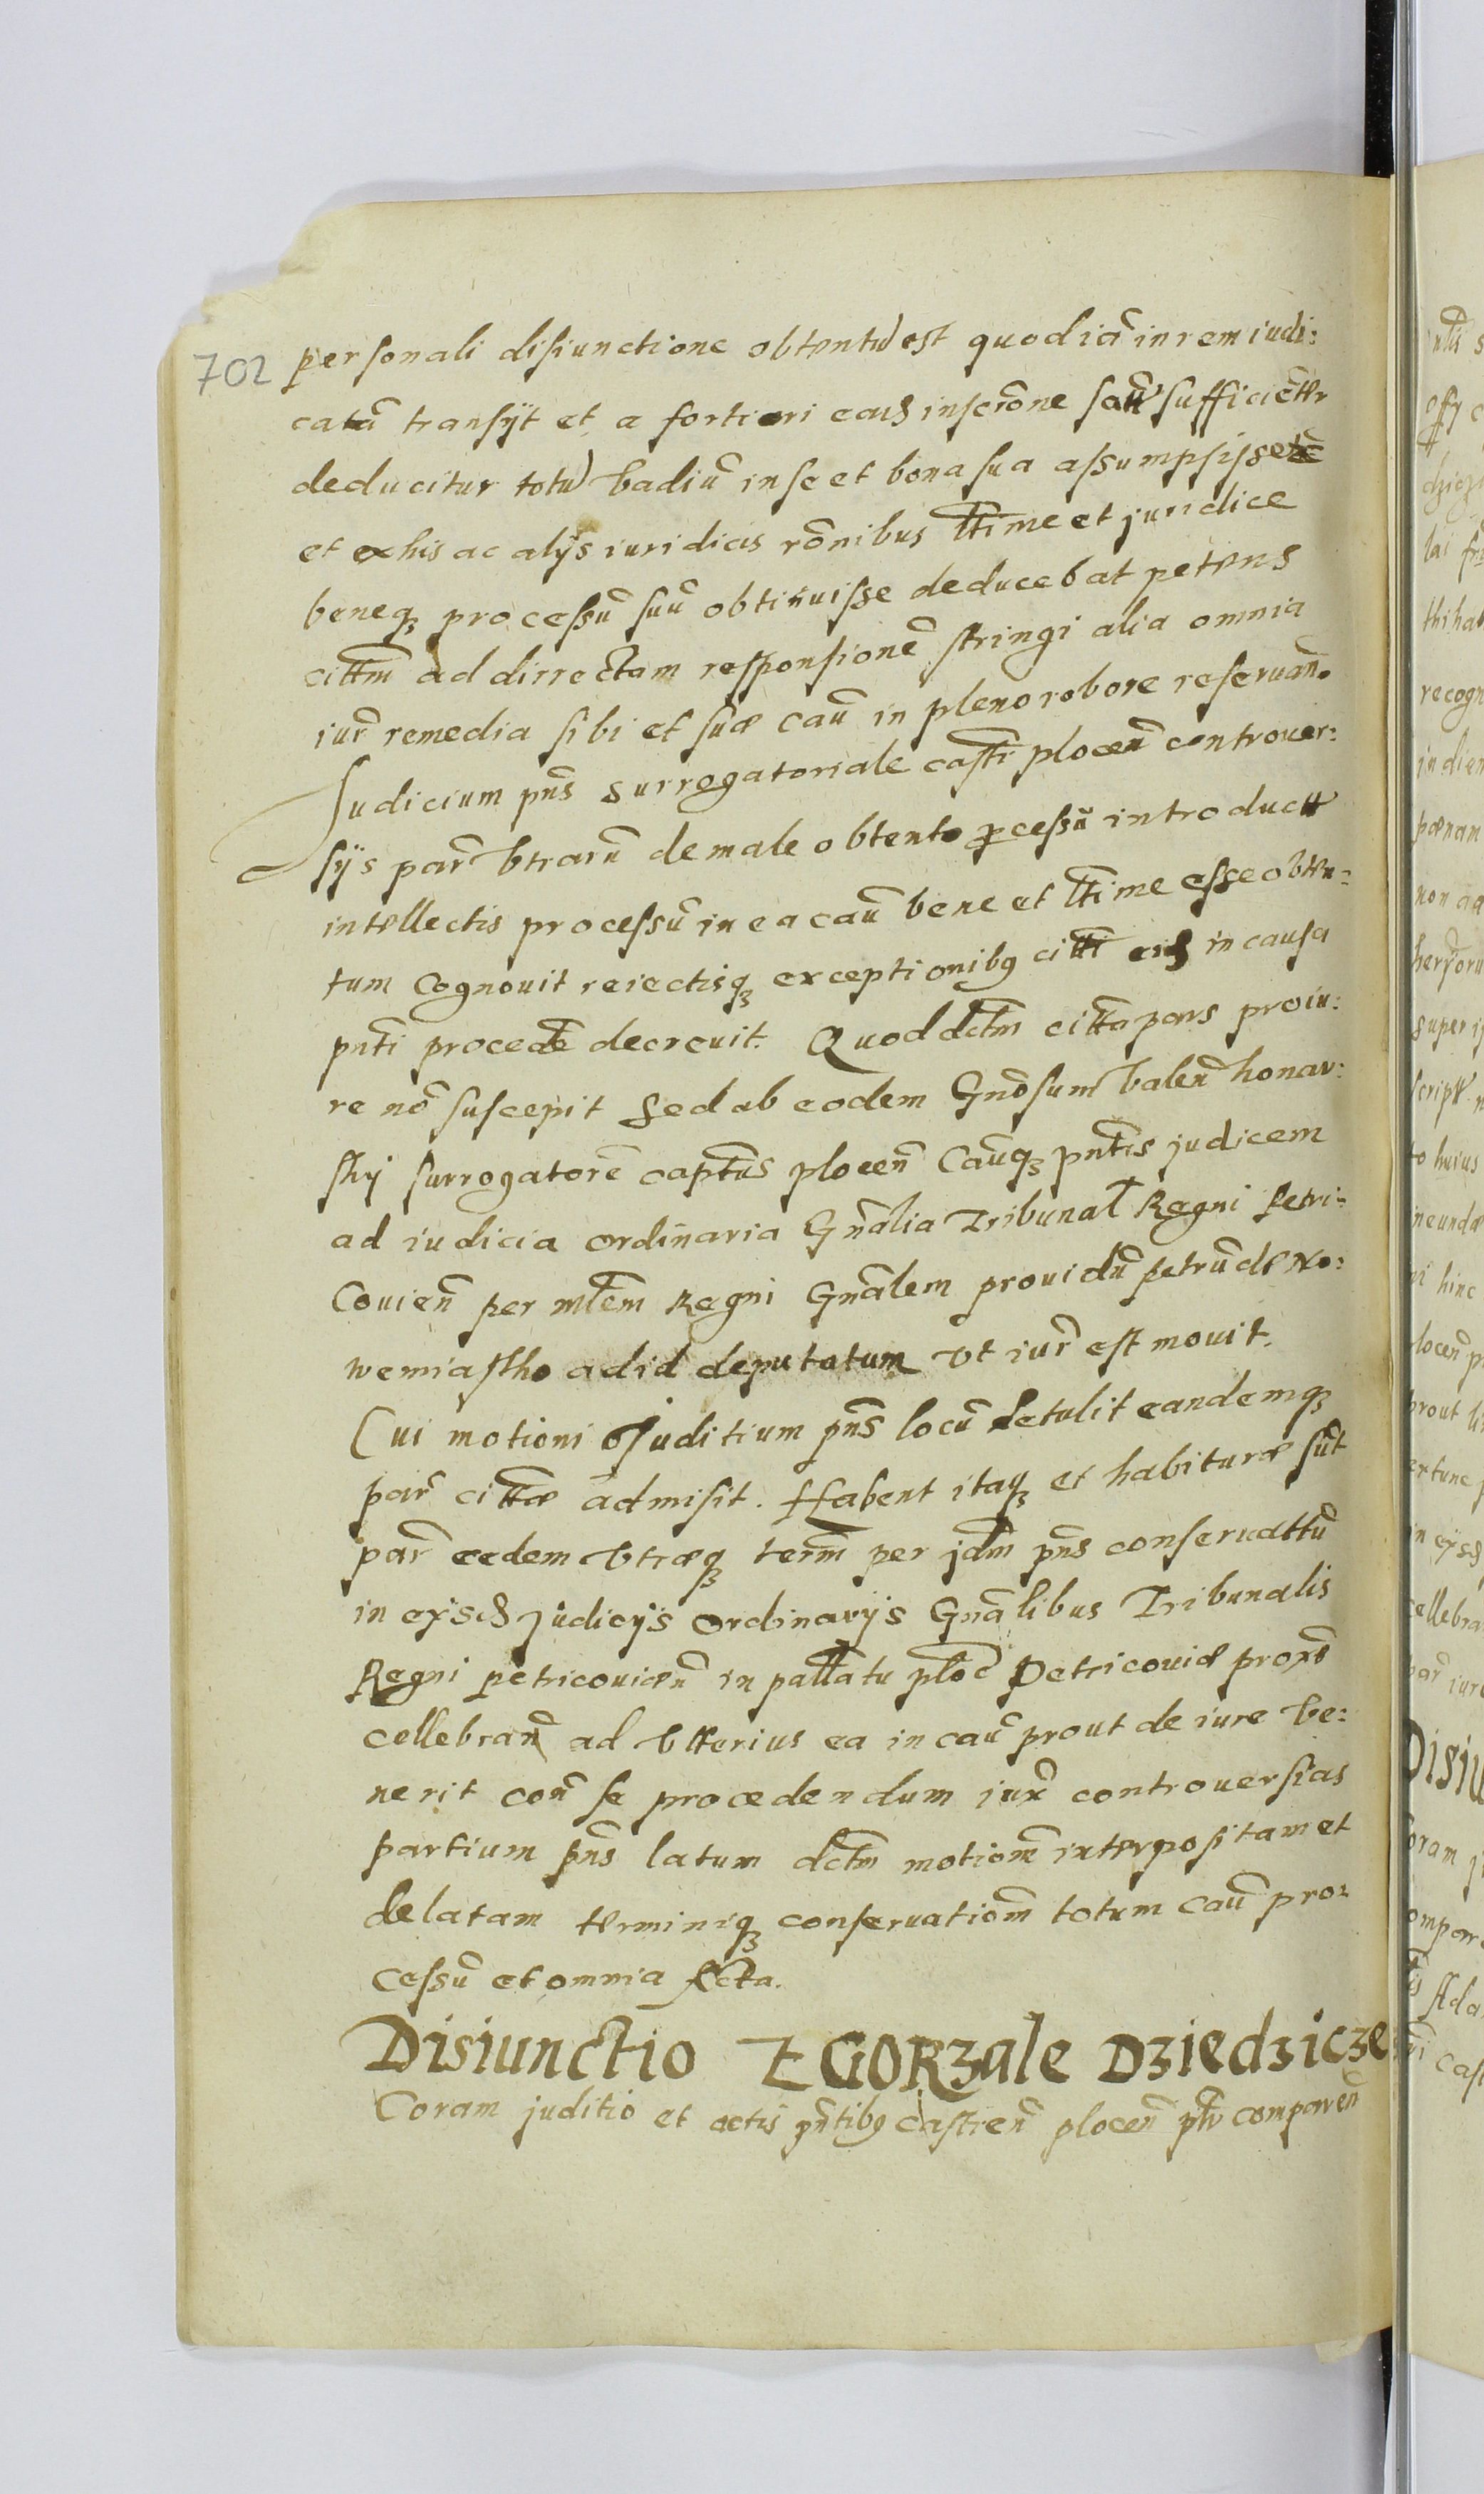 702
personali disiunctione obtentu est quod ia in rem iudi:
catā transÿt et a fortiori ... inscrōne ... sufficiētr
deducitur totu vadiū in se et bona sua assumpsisse
et ex his ac alÿs iuridicis rōnibus ltime et juridice
beneqꝫ processū suū obtinuisse deducebat petens
cittm ad dirrectam responsionē stringi alia omnia
iur̄ remedia sibi et suæ cau in pleno robore reseruan̄.
Judicium pn̄s surrogatoriale castri plocen̄ controuer:
sÿs par̄ vtrarū de male obtento ꝓcessu introduct
intellectis processū in ea cau bene et ltime esse obten:
tum Cognouit reiectisqꝫ exceptionibꝯ citti ... in causa
pnti procedē decreuit. Quod dctm citta pars pro iu:
re nō suscepit Sed ab eodem Gnōsum Valen̄ honar:
sky surrogatorē captūs plocen̄ Cauqꝫ pntis judicem
ad iudicia ordinaria Gnālia Tribunal Regni Petri:
Couien̄ per mltem Regni Gnālem prouidū petrū de No:
wemiastho ad id deputatum vt iur̄ est mouit.
Cui motioni Juditium pn̄s locū detulit eandemqꝫ
par̄ cittæ admisit. Habent itaqꝫ et habituræ sūt
par̄ eedem vtræqꝫ term̄ per jdm pn̄s conseruattū
in eÿsd judicÿs Ordinarÿs Gnālibus Tribunalis
Regni petricouien̄ in pallatu ploc̄ Petricouiæ proxē
cellebran̄ ad vlterius ea in cau prout de iure ve:
nerit con̄ se procedendum jux̄ controuersias
partium pn̄s latum dctm motiom̄ interpositam et
delatam terminiqꝫ conseruatiom̄ totum Cau pro:
cessū et omnia fcta.
Disiunctio ZGORZale DziedziCze
Coram juditio et actis pn̄tibꝯ castren̄ plocen̄ ptr comparen̄